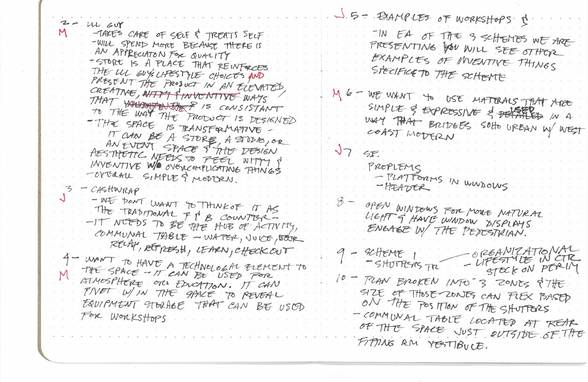 2- LLL GUY
M
-TAKES CARE OF SELF & TREATS SELF
-WILL SPEND MORE BECAUSE THERE IS
AN APPRECIATON FOR QUALITY
-STORE IS A PLACE THAT REINFORCES
THE LLL GUY'S LIFESTYLE CHOICES AND
PRESENT THE PRODUCT IN AN ELEVATED,
CREATIVE, WITTY & INVENTIVE WAYS
THAT IS CONSISTANT
TO THE WAY THE PRODUCT IS DESIGNED
-THE SPACE IS TRANSFORMATIVE-
IT CAN BE A STORE, A STUDIO, OR
AN EVENT SPACE & THE DESIGN
AESTHETIC NEEDS TO FEEL WITTY &
INVENTIVE W/O OVERCOMPLICATING THINGS
-OVERALL SIMPLE & MODERN.
3- CASHWRAP
J
-WE DON'T WANT TO THINK OF IT AS
THE TRADITIONAL COUNTER-
-IT NEEDS TO BE THE HUB OF ACTIVITY,
COMMUNAL TABLE - WATER, JUICE,
RELAX, REFRESH, LEARN, CHECKOUT
4- WANT TO HAVE A TECHNOLOGICAL ELEMENT TO
M
THE SPACE - IT CAN BE USED FOR
ATMOSPHERE OR EDUCATION. IT CAN
PIVOT W/IN THE SPACE TO REVEAL
EQUIPMENT STORAGE THAT CAN BE USED
FOR WORKSHOPS
J
5- EXAMPLES OF WORKSHOPS &
-IN EA OF THE 3 SCHEMES WE ARE
PRESENTING YOU WILL SEE OTHER
EXAMPLES OF INVENTIVE THINGS
SPECIFIC TO THE SCHEME
M
6- WE WANT TO USE MATERIALS THAT ARE
SIMPLE & EXPRESSIVE & USED IN A
WAY THAT BRIDGES SOHO URBAN W/ WEST
COAST MODERN
J
7 SF.
PROBLEMS
-PLATFORMS IN WINDOWS
-HEADER
8- OPEN WINDOWS FOR MORE NATURAL
LIGHT & HAVE WINDOW DISPLAYS
ENGAGE W/ THE PEDESTRIAN.
9- SCHEME 1
-SHUTTERS TR
ORGANIZATIONAL
-LIFESTYLE IN CTR
STOCK ON PERIM
10- PLAN BROKEN INTO 3 ZONES & THE
SIZE OF THOSE ZONES CAN FLEX BASED
ON THE POSITION OF THE SHUTTERS
-COMMUNAL TABLE LOCATED AT REAR
OF THE SPACE JUST OUTSIDE OF THE
FITTING RM VESTIBULE.